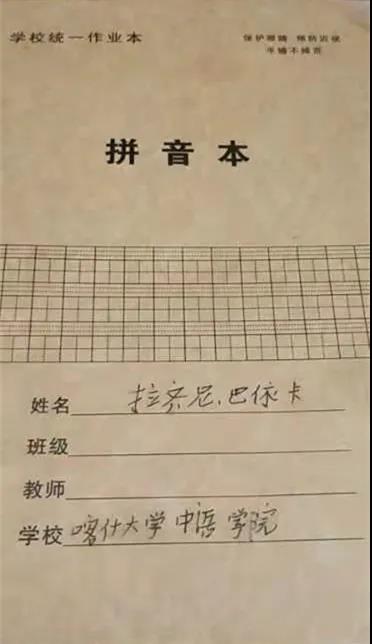 学校统一作业本
保护眼睛 预防近视
平铺不掉页
拼音本
姓名 拉齐尼.巴依卡
班级
教师
学校 喀什大学 中语 学院